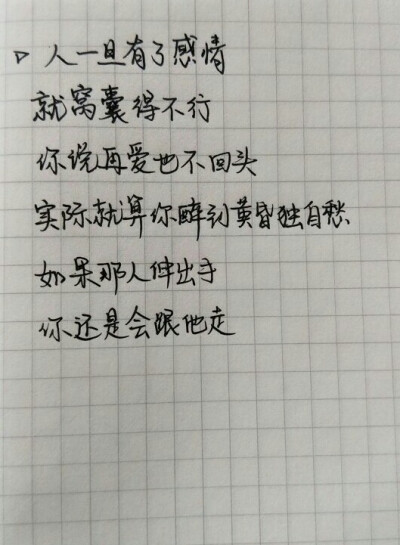 人一旦有了感情
就窝囊得不行
你说再爱也不回头
实际就算你醉到黄昏独自愁
如果那人伸出手
你还是会跟他走